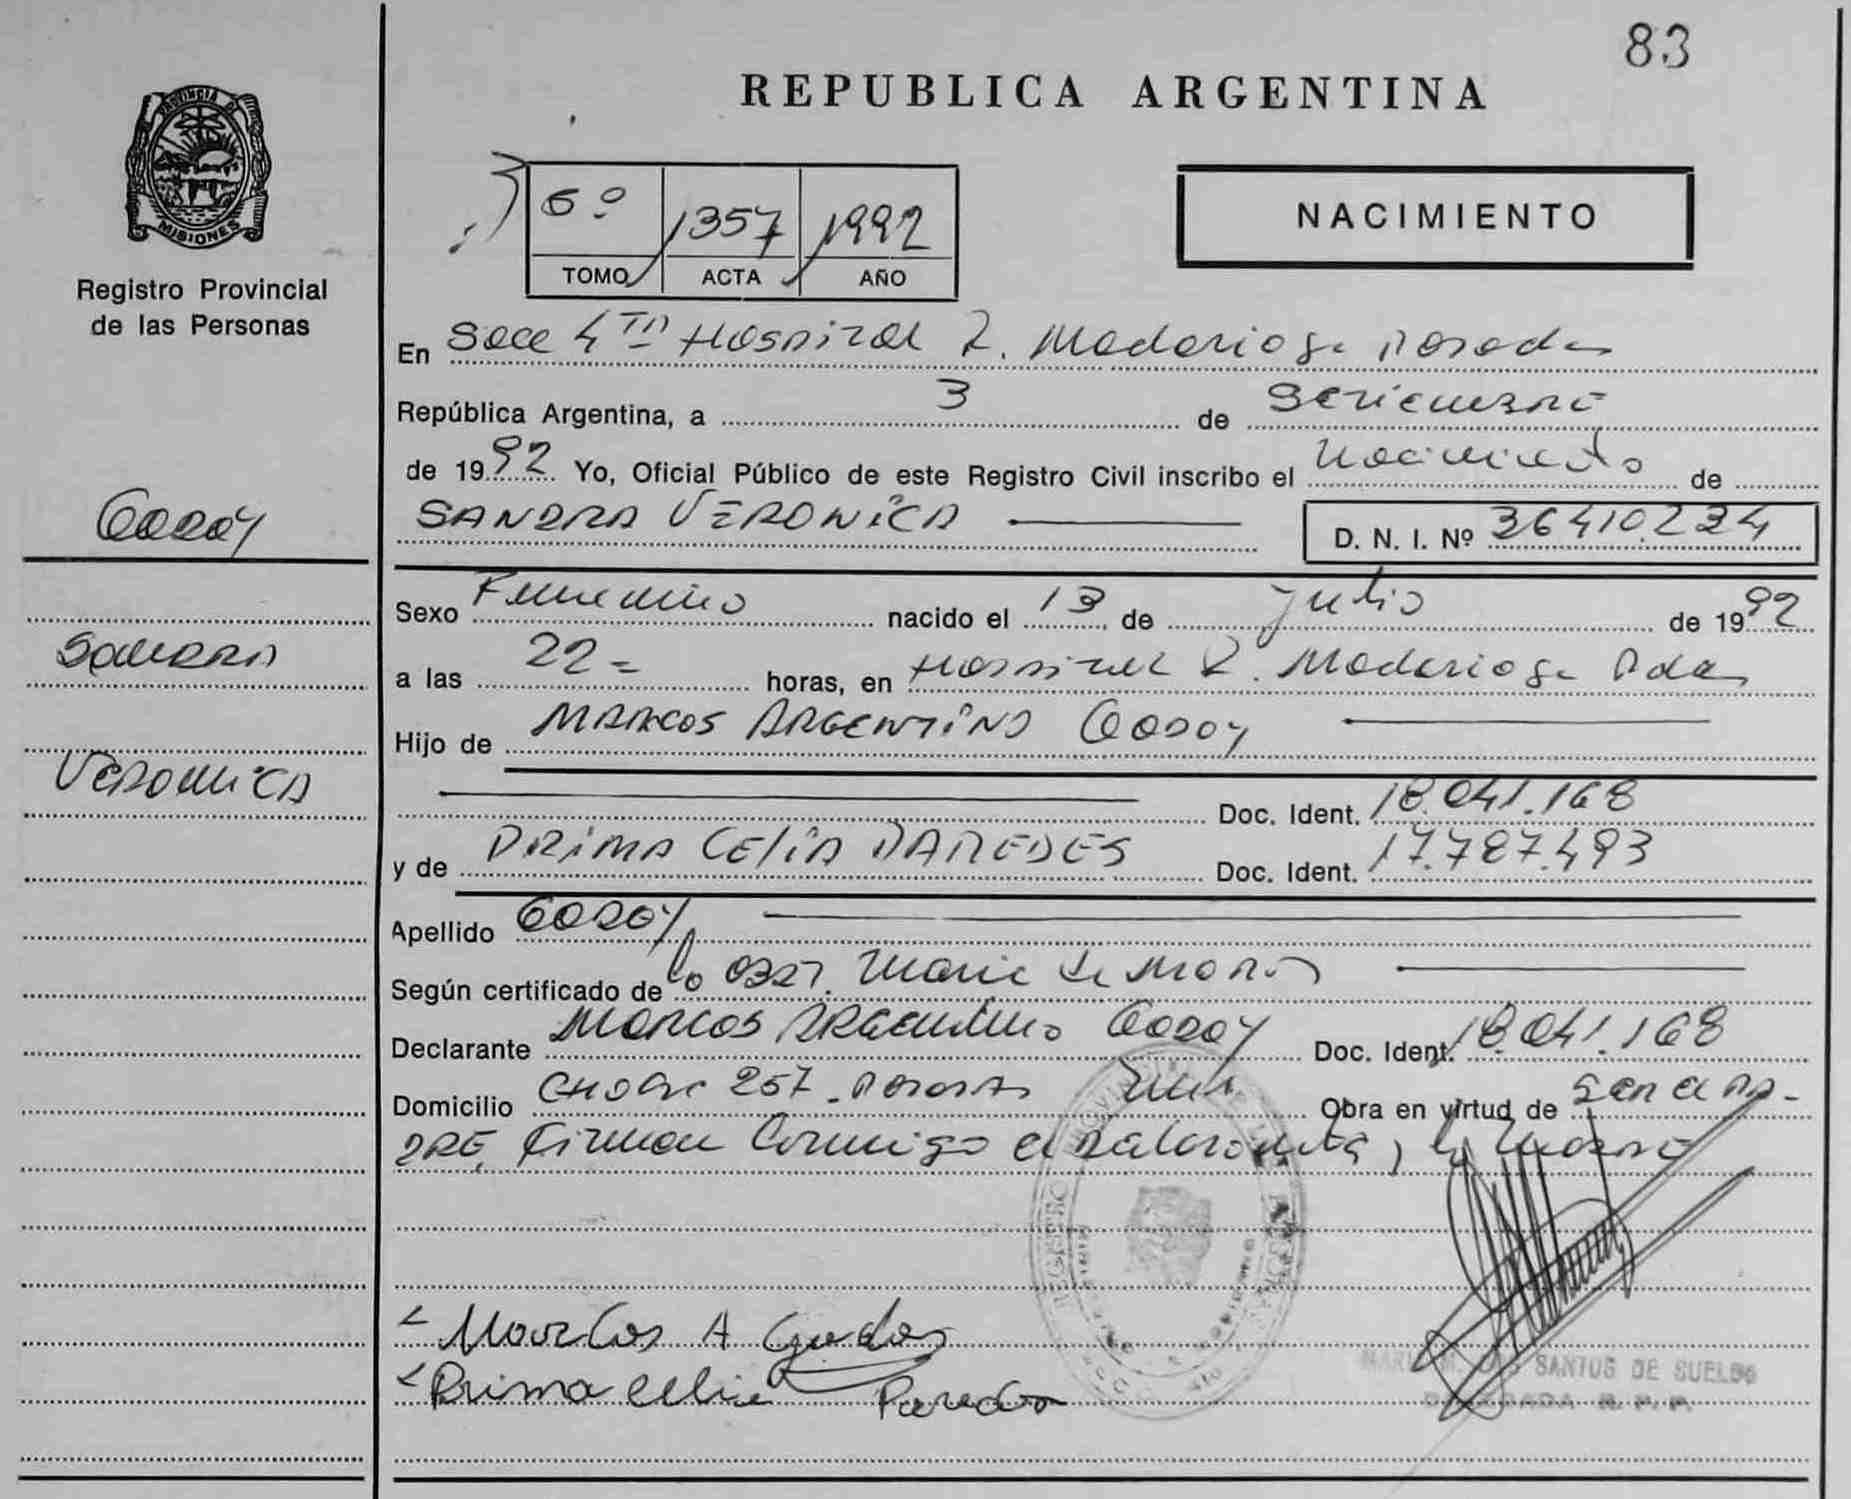 83
REPUBLICA ARGENTINA
PROVINCIA DE
MISIONES
Registro Provincial
de las Personas
6º 1357 1992
TOMO ACTA AÑO
NACIMIENTO
En Secc 4ta Hospital R. Madariaga Posadas
República Argentina, a 3 de Septiembre
de 1992 Yo, Oficial Público de este Registro Civil inscribo el nacimiento de
SANDRA VERONICA D. N. I. Nº 36410.234
Godoy
Sandra
Veronica
Sexo Femenino nacido el 13 de Julio de 1992
a las 22 = horas, en Hospital R. Madariaga Pdas
Hijo de MARCOS ARGENTINO GODOY
Doc. Ident. 18.041.168
y de PRIMA CELIA PAREDES Doc. Ident. 17.787.493
Apellido GODOY
Según certificado de la Obst. Maria
Declarante Marcos Argentino Godoy Doc. Ident. 18.041.168
Domicilio 257 - Posadas Obra en virtud de Ser el Pa-
dre, Firman Conmigo el Declarante y la Madre
Marcos A Godoy
Prima Celia Paredes
DOS SANTOS DE SUELDO
DELEGADA R. P. P.